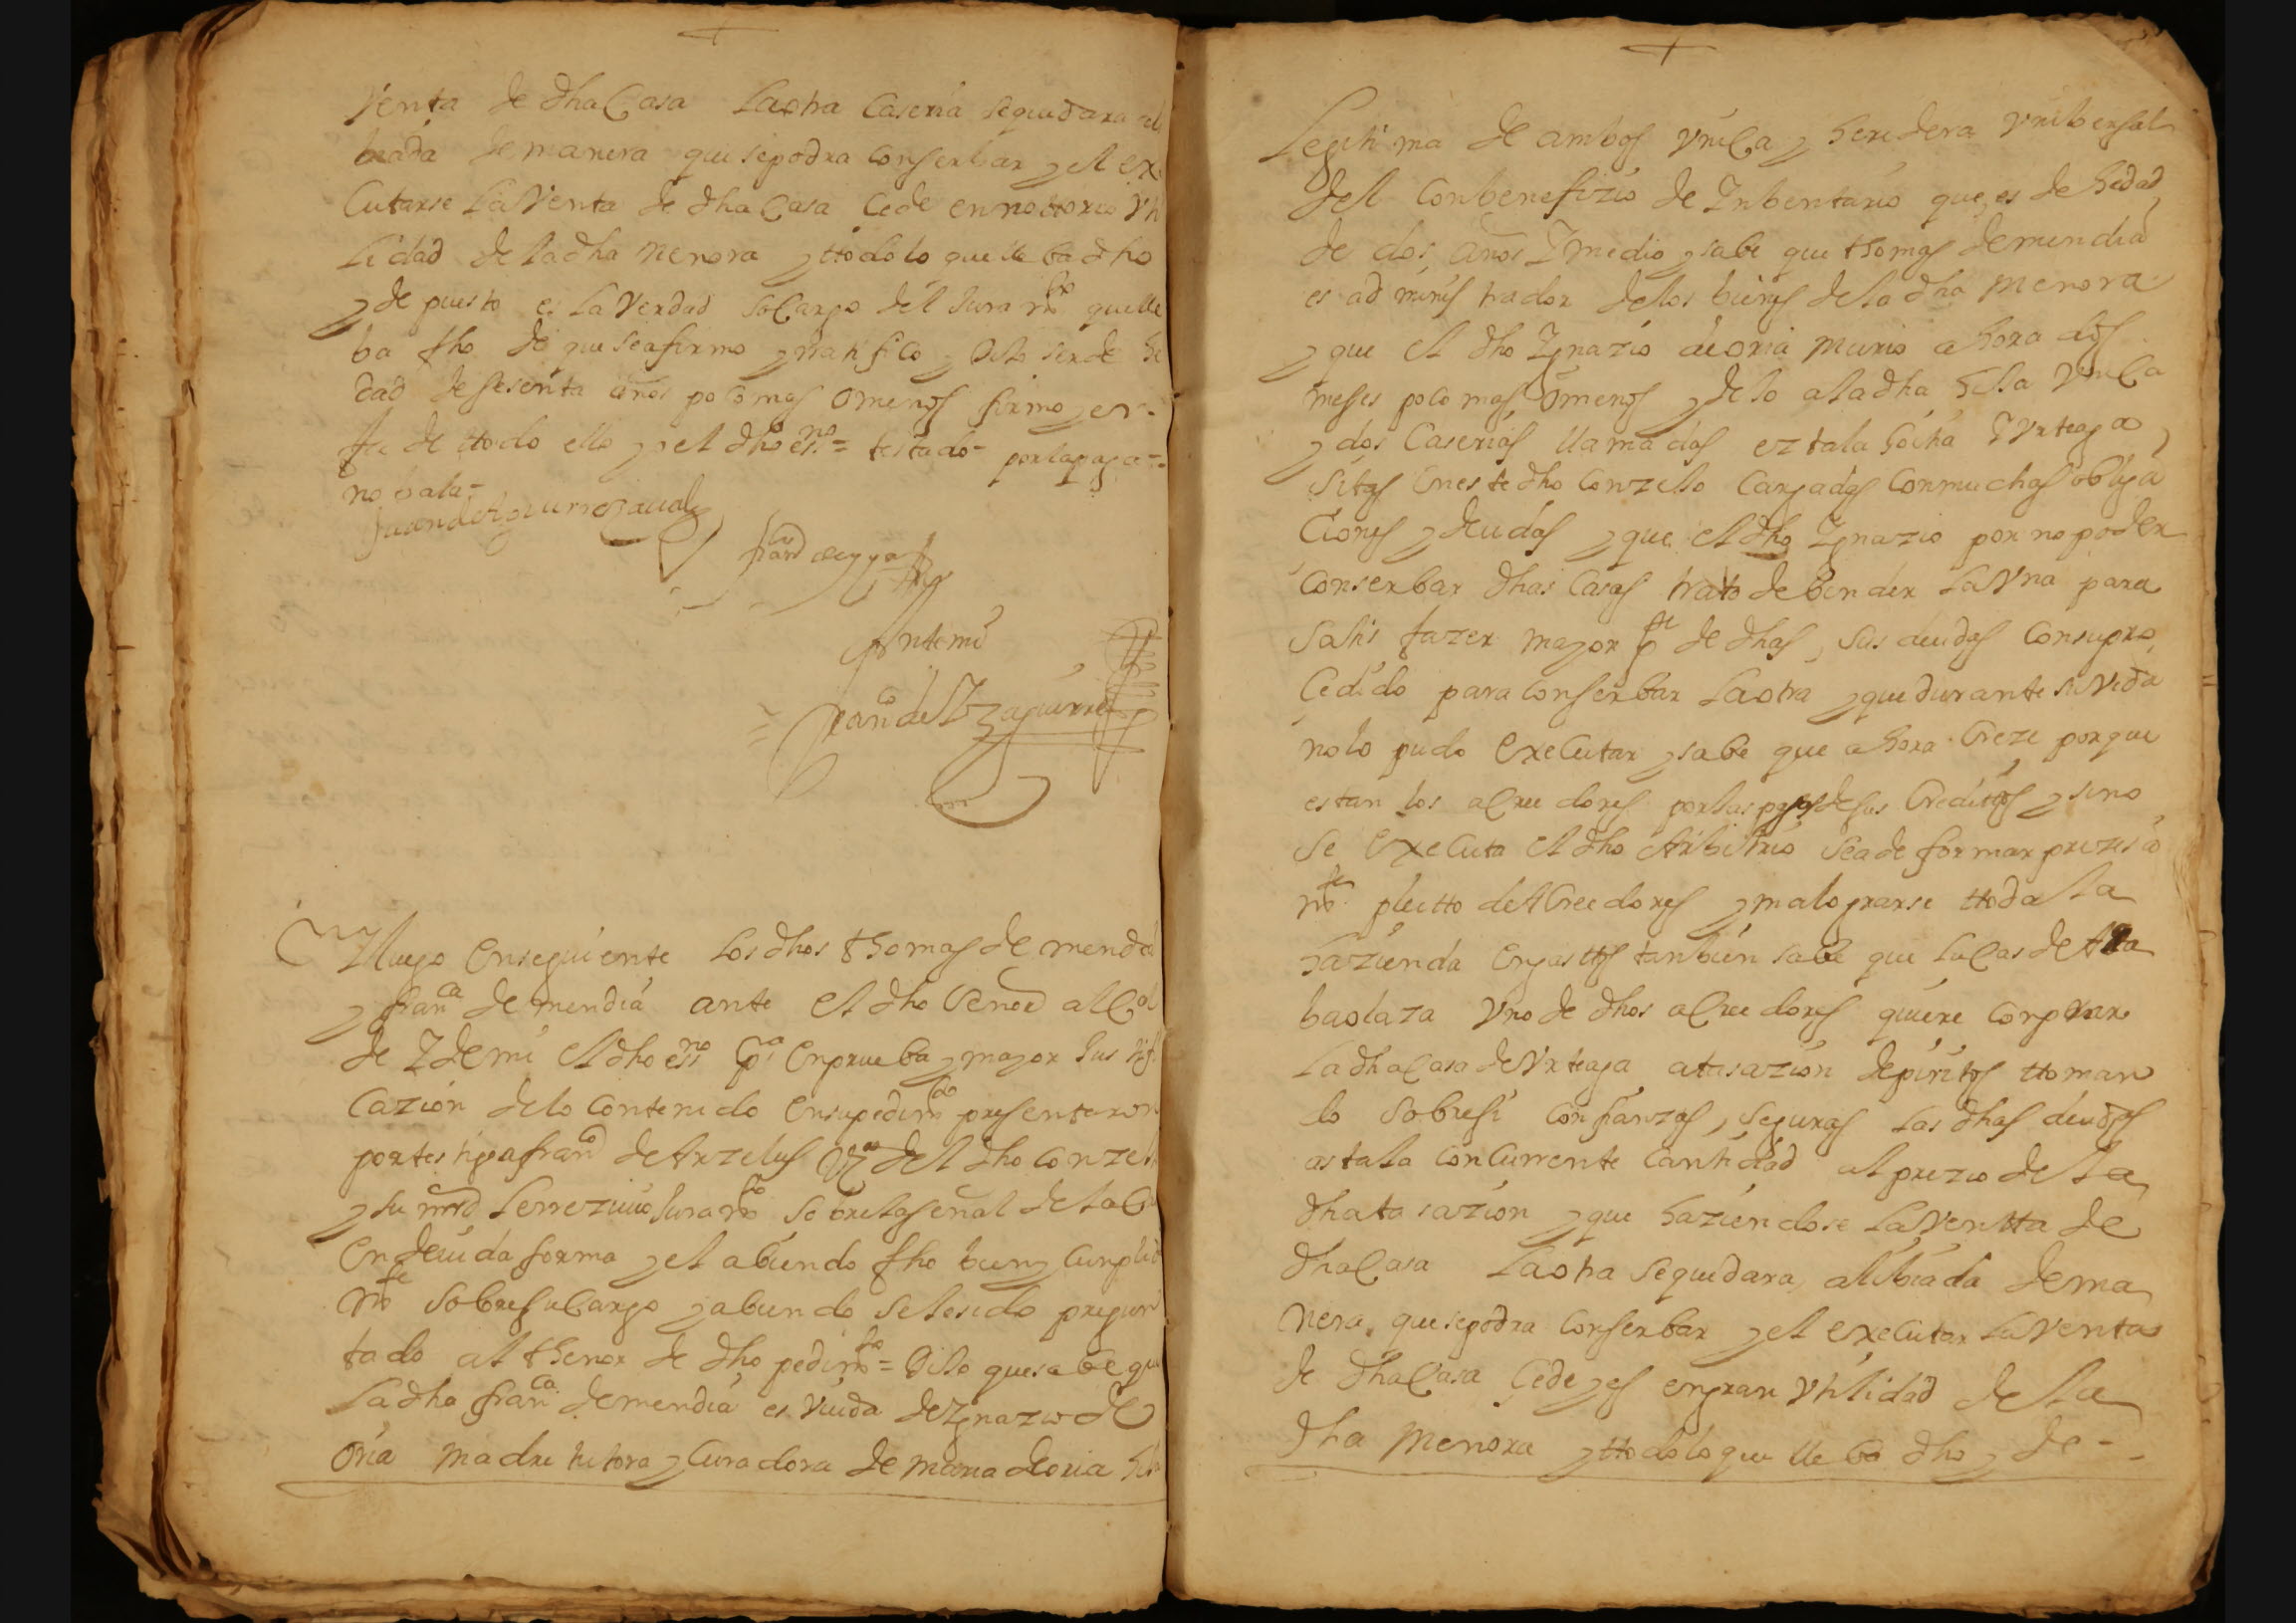 Venta de dha Casa La otra Caseria se quedara ali
biada de manera que se podra conserbar y el exe
Cutarse La Venta de dha Casa Cede en nottorio Vti
Lidad de la dha menora y ttodo lo que lleba dho
y de puesto es La Verdad so Cargo del Juramto que lle
ba fho de que se afirmo y ratifico y Dijo ser de he
dad de sesenta años poco mas o menos firmo y en
fee de ttodo ello yo el dho essno = testado = por la paga =
no bala =
Juan de
Franco de
Ante mi
Franco de Yzaguirre
Y luego Enseguiente Los dhos thomas de mendia
y franca de mendia ante el dho Señor alCalde
de Y de mi el dho essno En prueba y mayor Justifi
Cazion de lo Contenido en su pedimto presentaron
por testigo a franco de Arzelus Vzo del dho Conzejo
y su mrd Le rrezivio Juramto sobre la señal de la Cruz
En devida forma y el abiendo fho bien y Cunplida
mte sobre su Cargo y abiendo sele sido pregun
tado al thenor de dho pedimto = Dijo que sabe que
La dha franca de mendia es viuda de Ygnazio de
Oria madre tutora y Curadora de maria de oria hija
Legitima de ambos Vnica y heredera Vnibersal
del Con benefizio de Ynbentario que es de hedad
de dos años Y medio y sabe que thomas de mendia
es administrador de los bienes de la dha menora
y que el dho Ygnazio de oria murio ahora dos
meses poco mas o menos y dejo a la dha hija Vnica
y dos Caserias llamadas eztala hoitia Y Vrteaga
sitas en este dho Conzejo Cargadas Con muchas obliga
Ciones y deudas y que el dho Ygnazio por no poder
conserbar dhas Casas trato de bender La Vna para
satisfazer mayor pte de dhas sus deudas Con su pro
Cedido para conserbar La otra y que durante su Vida
no lo pudo exeCutar y sabe que ahora Creze por que
estan los aCreedores por las pagas de sus Creditos y si no
se exeCuta el dho Arbitrio se a de formar prezisa
mte pleitto de ACreedores y malograrse ttoda la
hazienda en gasttos tanbien sabe que LuCas de Ara
baolaza Vno de dhos aCreedores quiere Conprar
La dha Casa de Vrteaga a tasazion de peritos ttoman
do sobre si con fianzas seguras las dhas deudas
asta la Concurrente Cantidad al prezio de la
dha tasazion y que haziendose La Ventta de
dha Casa La otra se quedara alibiada de ma
nera que se podra conserbar y el executar La Venta
de dha Casa Cede y es en gran Vtilidad de la
dha Menora y ttodo lo que lleba dho y de =